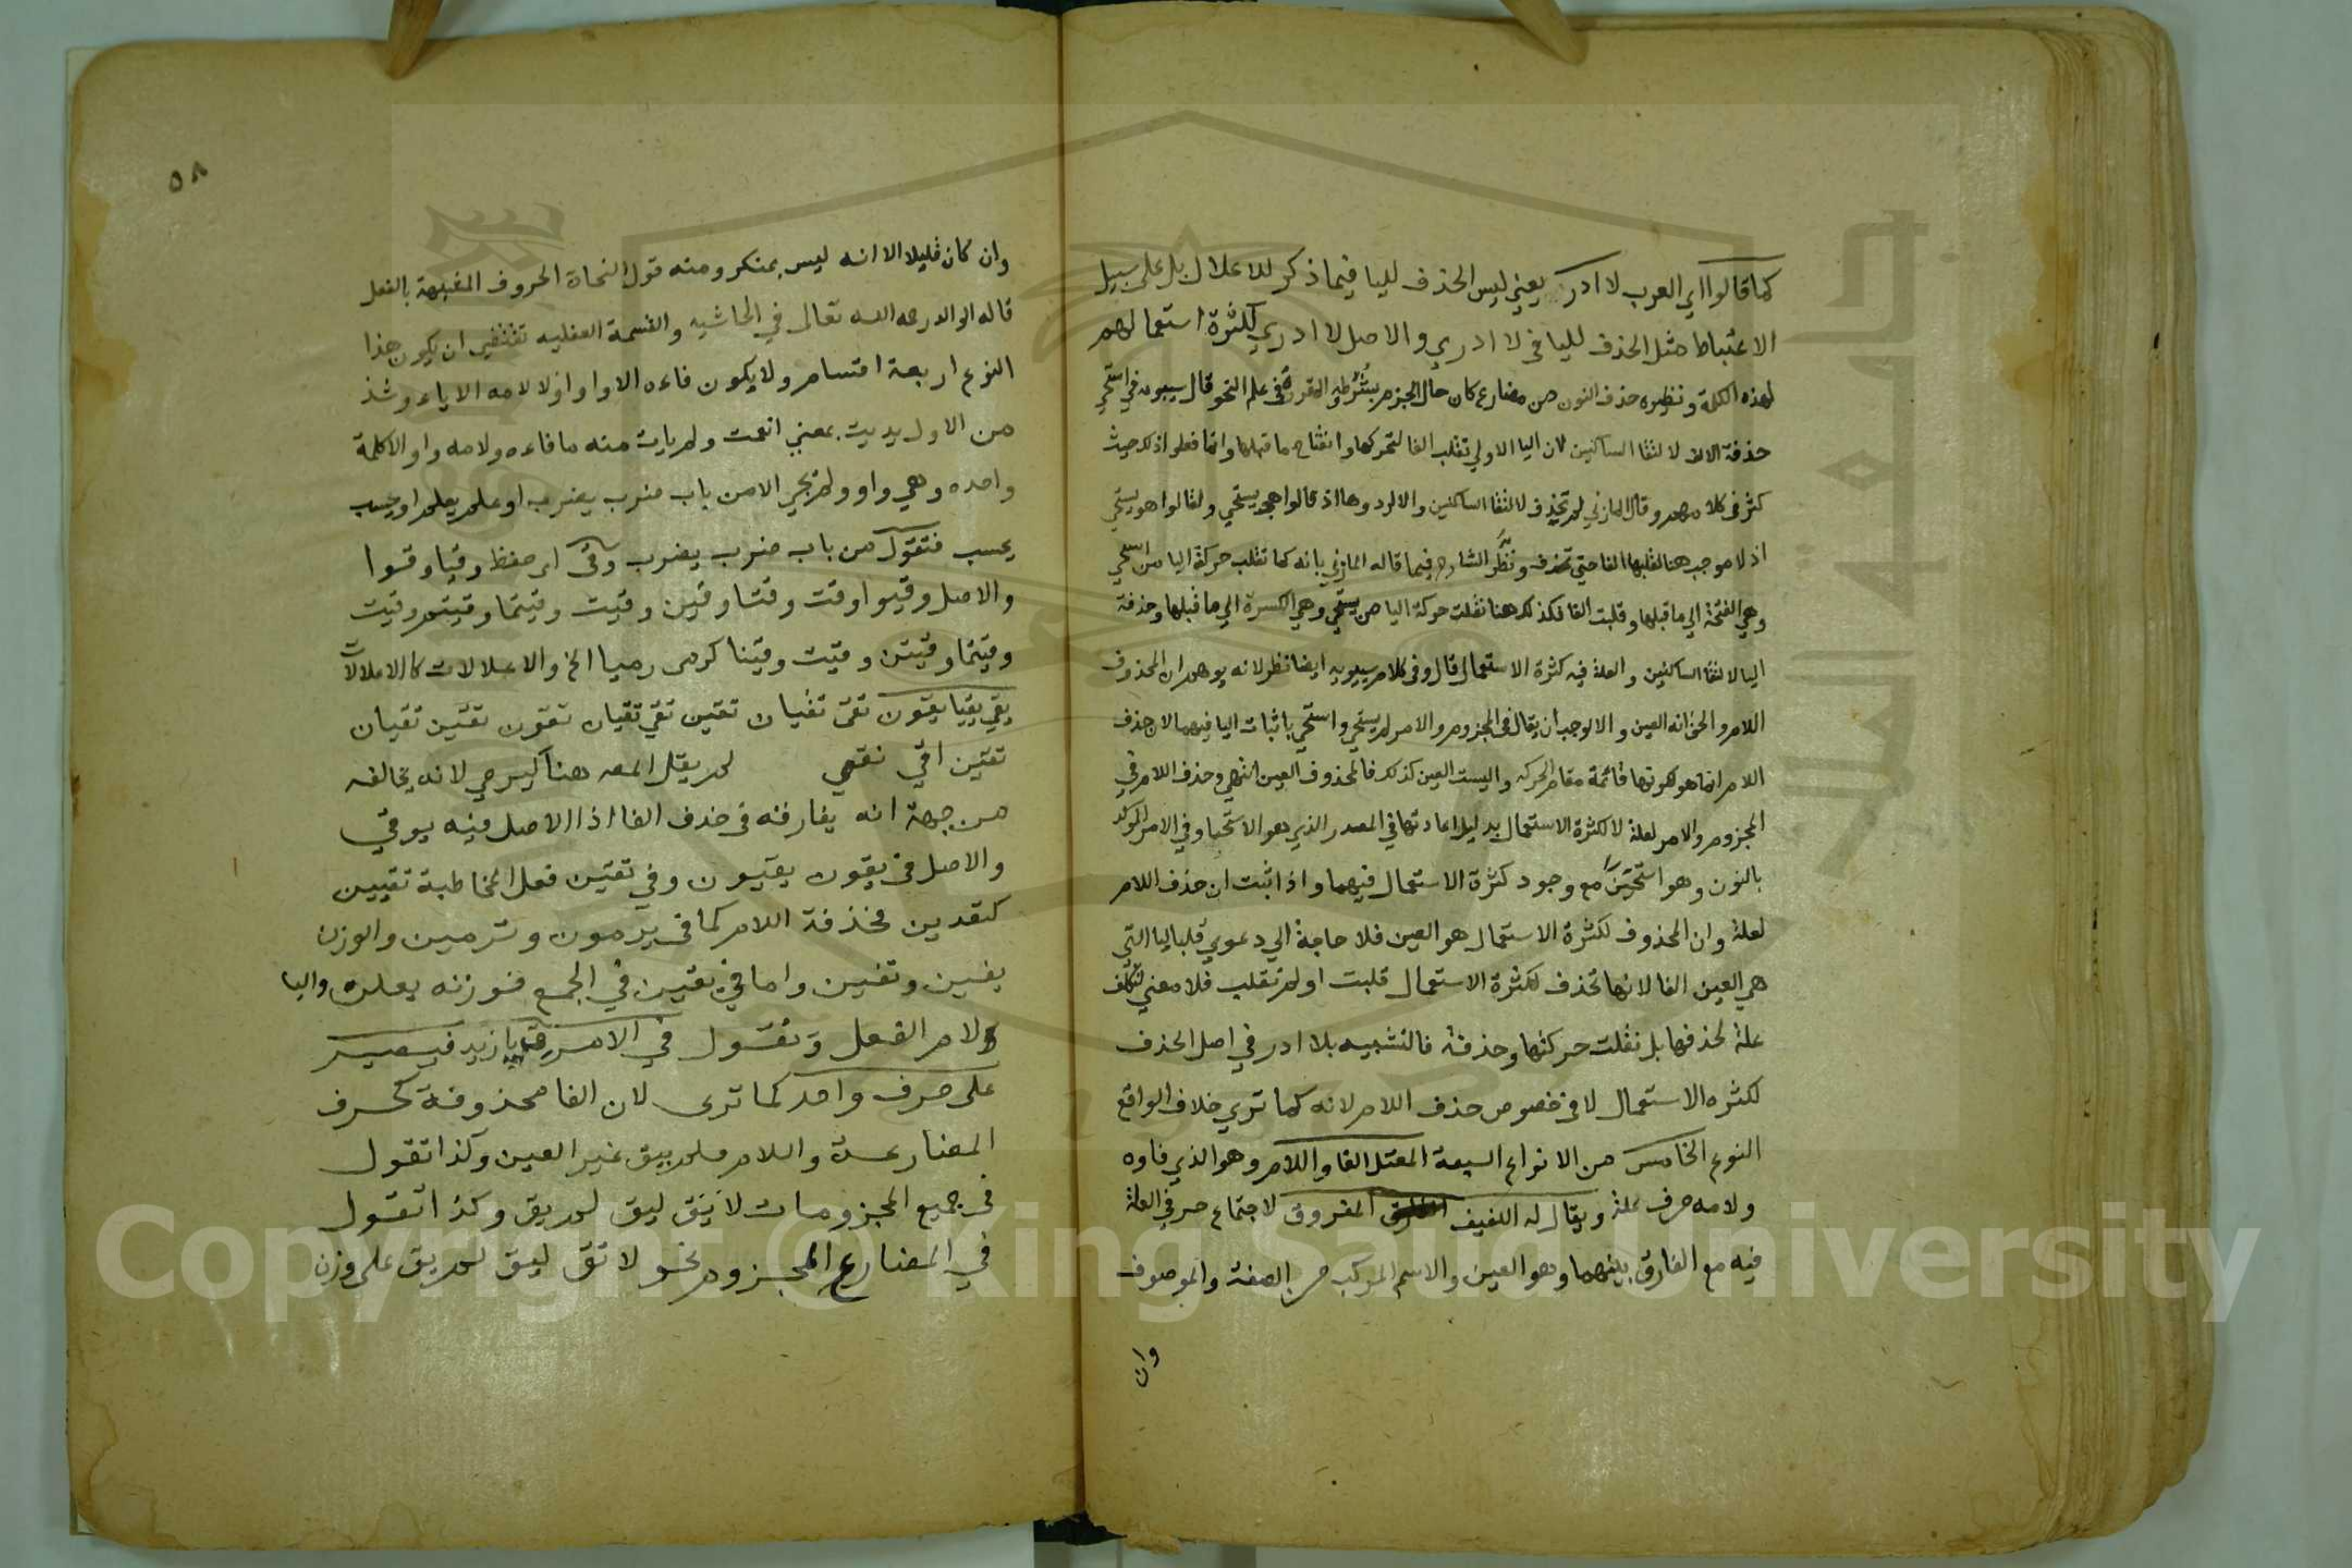 كما قالوا اي العرب لا ادر يعني ليس الحذف لليا فيما ذكر للاعلال بل على سبيل
الاعتباط مثل الحذف لليا في لا ادري والاصل لا ادري لكثرة استعمالهم
لهذه الكلمة ونظيره حذف النون من مضارع كان حال الجزم بشرطه المقرر في علم النحو قال سيبويه في استحي
حذفة الالف لالتقا الساكنين لان اليا الاولي تقلب الفا لتحركها وانفتاح ما قبلها وانما فعلوا ذلك حيث
كثر في كلامهم وقال المازني لم تحذف لالتقا الساكنين والا لردوها اذ قالوا هو يستحي ولقالوا هو يستحي
اذ لا موجب هنا لقلبها الفا حتي تحذف ونظر الشارح فيما قاله المازني بانه كما تقلب حركة اليا من استحي
وهي الفتحة الي ما قبلها وقلبت الفا فكذلك هنا نقلت حركة اليا من يستحي وهي الكسرة الي ما قبلها وحذفة
اليا لالتقا الساكنين والعلة فيه كثرة الاستعمال قال وفي كلام سيبويه ايضا نظر لانه يوهم ان المحذوف
اللام والحق انه العين والا لوجب ان يقال في المجزوم والامر لم يستحي واستحي باثبات اليا فيهما لان حذف
اللام انما هو لكونها قائمة مقام الحركه واليست العين كذلك فالمحذوف العين انتهي وحذف اللام في
المجزوم والامر لعلة لا لكثرة الاستعمال بدليل اعادتها في المصدر الذي هو الاستحيا وفي الامر الموكد
بالنون وهو استحين مع وجود كثرة الاستعمال فيهما واذا ثبت ان حذف اللام
لعلة وان المحذوف لكثرة الاستعمال هو العين فلا حاجة الي دعوي قلب اليا التي
هي العين الفا لانها تحذف لكثرة الاستعمال قلبت او لم تقلب فلا معني لتكلف
علة لحذفها بل نقلت حركتها وحذفة فالتشبيه بلا ادر في اصل الحذف
لكثره الاستعمال لا في خصوص حذف اللام لانه كما تري خلاف الواقع
النوع الخامس من الانواع السبعة المعتل الفا واللام وهو الذي فاوه
ولامه حرف علة ويقال له اللفيف المفروق لاجتماع حرفي العلة
فيه مع الفارق بينهما وهو العين والاسم المركب من الصفة والموصوف
وان
٥٨
وان كان قليلا الا انه ليس بمنكر ومنه قول النحاة الحروف المشبهة بالفعل
قاله الوالد رحمه الله تعالى في الحاشيه والقسمة العقليه تقتضي ان يكون هذا
النوع اربعة اقسام ولا يكون فاءه الا واوا ولا لامه الا ياء وشذ
من الاول يديت بمعني انعمت ولم يات منه ما فاءه ولامه واو الا كلمة
واحده وهي واو ولم يجي الا من باب ضرب يضرب او علم يعلم او حسب
يحسب فتقول من باب ضرب يضرب وقى اي حفظ وقيا وقوا
والاصل وقيوا وقت وقتا وقين وقيت وقيتما وقيتم وقيت
وقيتما وقيتن وقيت وقينا كرمى رميا الخ والاعلالات كالاعلالات
يقي يقيا يقون تقي تقيان تقين تقي تقيان تقون تقين تقيان
تقين اقي نقي لم يقل المصه هنا كيرمي لانه يخالفه
من جهة انه يفارقه في حذف الفا اذ الاصل فيه يوقي
والاصل في يقون يقيون وفي تقين فعل المخاطبة تقيين
كتعدين فحذفة اللام كما في يرمون وترمين والوزن
يفين وتفين واما في يقين في الجمع فوزنه يعلن واليا
لام الفعل وتقول في الامر ق يا زيد فيصير
على حرف واحد كما ترى لان الفا محذوفة كحرف
المضارعة واللام فلم يبق غير العين وكذا تقول
في جميع المجزومات لا تق ليق لم يق وكذا تقول
في المضارع المجزوم نحو لا تق ليق لم يق على وزن
Copyright © King Saud University